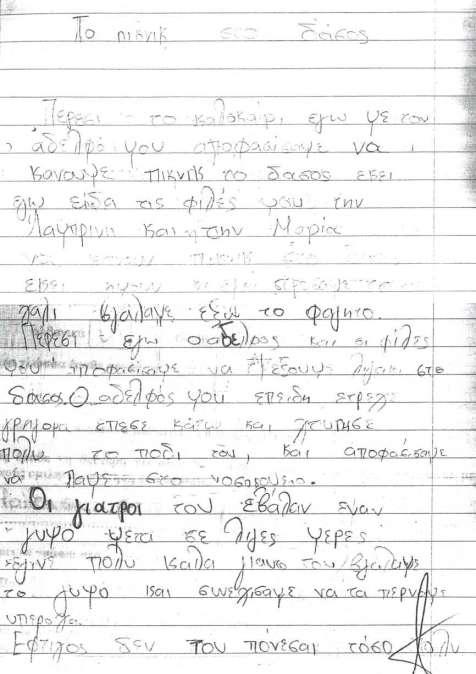 Το πικνικ στο δάσος
Περεσι το καλοκαίρι εγω με τον
αδελφό μου αποφασίσαμε να
κανουμε πικνικ το δασος εκει
εγω είδα τις φιλές μου την
Λαμπρινη και την Μαρία
πικνικ στο
εκει
χαλι βγαλαμε εξω το φαγητο.
Περεσι εγω ο αδελφος και οι φιλες
μου αποφασίσαμε να πεξουμε λιγακι στο
δασος. Ο αδελφός μου επειδη ετρεχε
γρηγορα επεσε κάτω και χτυπησε
πολυ το ποδι του, και αποφασισαμε
να παμε στο νοσοκομειο.
Οι γιατροι του εβαλαν εναν
γυψο μετα σε λιγες μερες
εγινε πολυ καλα του βγαλαμε
το γυψο και συνεχισαμε να τα περναμε
υπεροχα.
Εφτιχος δεν του πόνεσαι τόσο πολυ